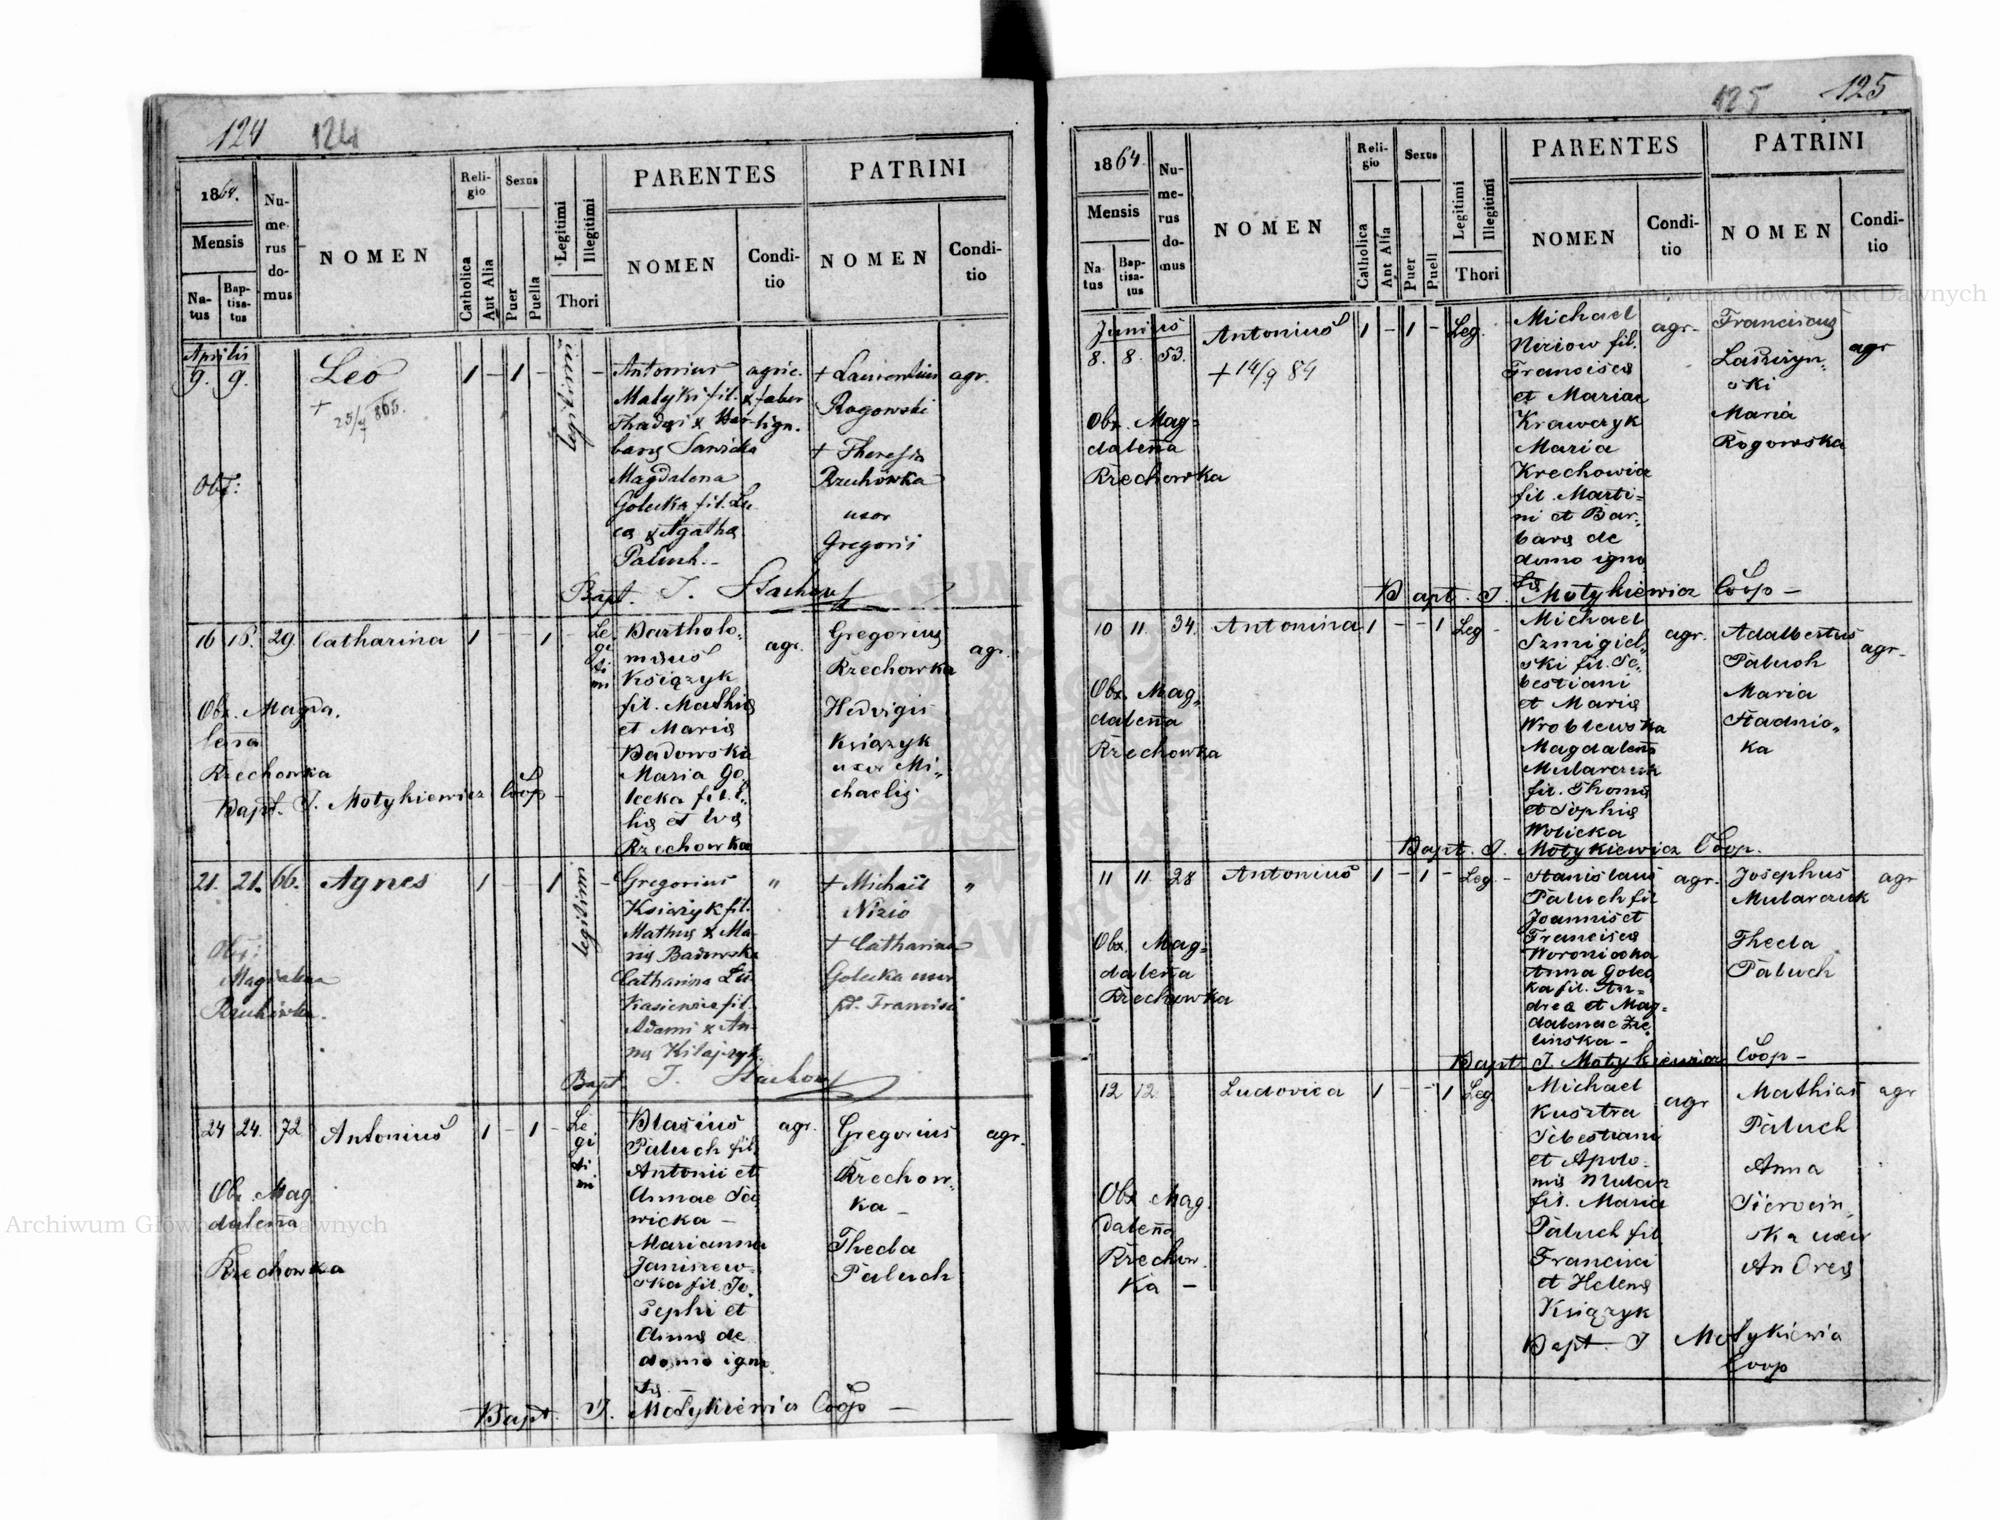 124 124
1864.
Mensis
Na-
tus
Bap-
tisa-
tus
Nu-
me-
rus
do-
mus
NOMEN
Reli-
gio
Catholica
Aut Alia
Sexus
Puer
Puella
Legitimi
Illegitimi
Thori
PARENTES
NOMEN
Condi-
tio
PATRINI
NOMEN
Condi-
tio
Aprilis
9. 9.
Leo
+
25/7 865.
Obst:
1 - 1 -
legitimi
-
Antonius
Matyki fil.
Magdalena
Golecka fil. Lu-
cæ & Agatha
Paluch.-
agric.
& faber
lign.
+ Laurentius
Rogowski
+ Theresia
Rzechowka
uxor
Gregorii
agr.
Bapt. J. Stachow
16 16. 29. Catharina 1 - - 1 -
Obx. Magda.
lena
Rzechowka
Bapt. J. Motykiewicz Coop -
Le
gi
ti
mi
Bartholo-
mæus
Książyk
fil. Mathiæ
et Mariæ
Badowska
Maria Go
lecka fil.
liæ et Evæ
Rzechowka
agr.
Gregorius
Rzechowka
Hedvigis
Książyk
uxor Mi-
chaelis
agr.
21. 21. 66. Agnes 1 - - 1
Obst:
Magdalena
Rzechowka.
legitimi
-
Gregorius
Książyk fil.
Mathiæ & Ma-
riæ Badowska
Catharina Łu-
kasiewicz fil.
Adami & An-
næ Kitajczyk
"
+ Michaël
Nizio
+ Catharina
Golecka uxor
Francisci
"
Bapt J. Stachow
24 24. 72 Antonius 1 - 1 -
Ob. Mag
dalena
Rzechowka
Le
gi
ti
mi
Blasius
Paluch fil.
Antonii et
Annae Sa
wicka -
Marianna
Janiszew-
ska fil. Jo-
sephi et
Annæ de
domo igno
tæ
agr.
Gregorius
Rzechow-
ka -
Thecla
Paluch
agr.
Bapt. J. Motykiewicz Coop -
125 125
1864.
Mensis
Na-
tus
Bap-
tisa-
tus
Nu-
me-
rus
do-
mus
NOMEN
Reli-
gio
Catholica
Ant Alia
Sexus
Puer
Puell
Legitimi
Illegitimi
Thori
PARENTES
NOMEN
Condi-
tio
PATRINI
NOMEN
Condi-
tio
Junius
8. 8. 53.
Antonius
+ 14/9 84
Obx. Mag-
dalena
Rzechowka
1 - 1 - Leg.
Michael
Niziow fil.
Francisca
et Mariae
Krawczyk
Maria
Krechowicz
fil. Marti-
ni et Bar-
baræ de
domo igno
tæ
agr.
Franciscus
Łaszczyn-
ski
Maria
Rogowska
agr
Bapt. J. Motykiewicz Coop -
10 11. 34. Antonina 1 - - 1 Leg -
Obx. Mag-
dalena
Rzechowka
Michael
Szmigiel-
ski fil. Se-
bestiani
et Mariæ
Wroblewska
Magdalena
Mularczuk
fil. Thomæ
et Sophiæ
Wolicka
agr.
Adalbertus
Paluch
Maria
Stadnic-
ka
agr -
Bapt. J. Motykiewicz Coop.
11 11. 28 Antonius 1 - 1 - Leg -
Obx. Mag-
dalena
Rzechowka
Stanislaus
Paluch fil
Joannis et
Francisca
Woroniecka
Anna Golec
ka fil. An-
drea et Mag-
dalenae Zie-
linska -
agr.
Josephus
Mularczuk
Thecla
Paluch
agr
Bapt J Motykiewicz Coop -
12 12. Ludovica 1 - - 1 Leg
Obx Mag.
dalena
Rzechow-
ka -
Michael
Kusztra
Sebestiani
et Apolo-
niæ Mular
fil. Maria
Paluch fil.
Francisci
et Helenæ
Książyk
agr
Mathias
Paluch
Anna
ska uxor
Andreæ
agr
Bapt. J Motykiewicz
Coop
Archiwum Główne Akt Dawnych
Archiwum Główne Akt Dawnych